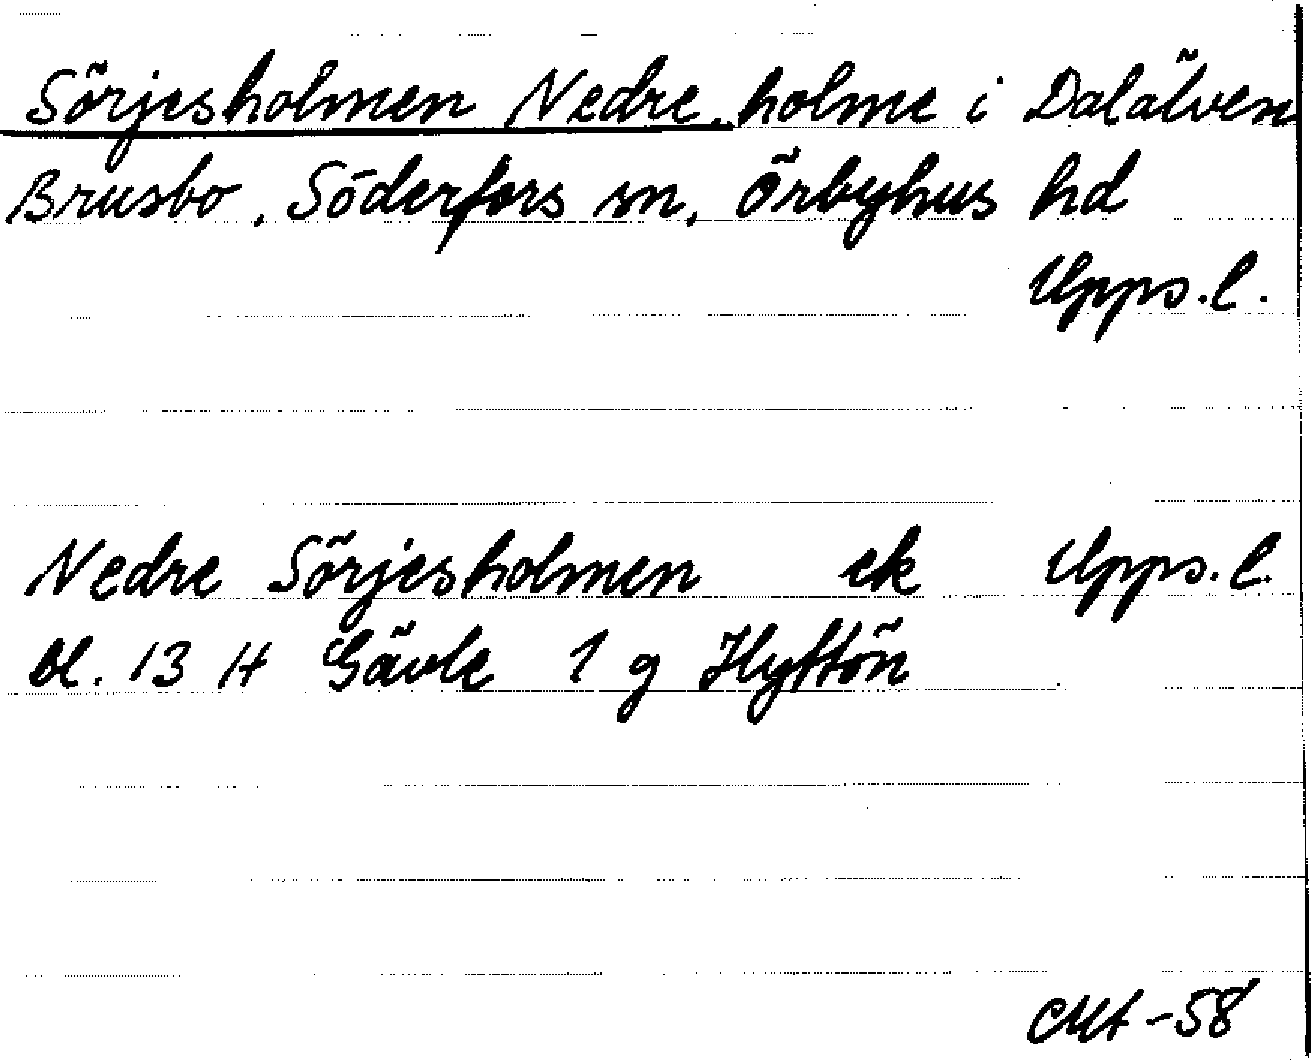 Sörjesholmen Nedre, holme i Dalälven
Brusbo, Söderfors sn, Örbyhus hd
Upps. l.
Nedre Sörjesholmen ek Upps. l.
bl. 13 H Gävle 1 g Hyttön
CMt -58